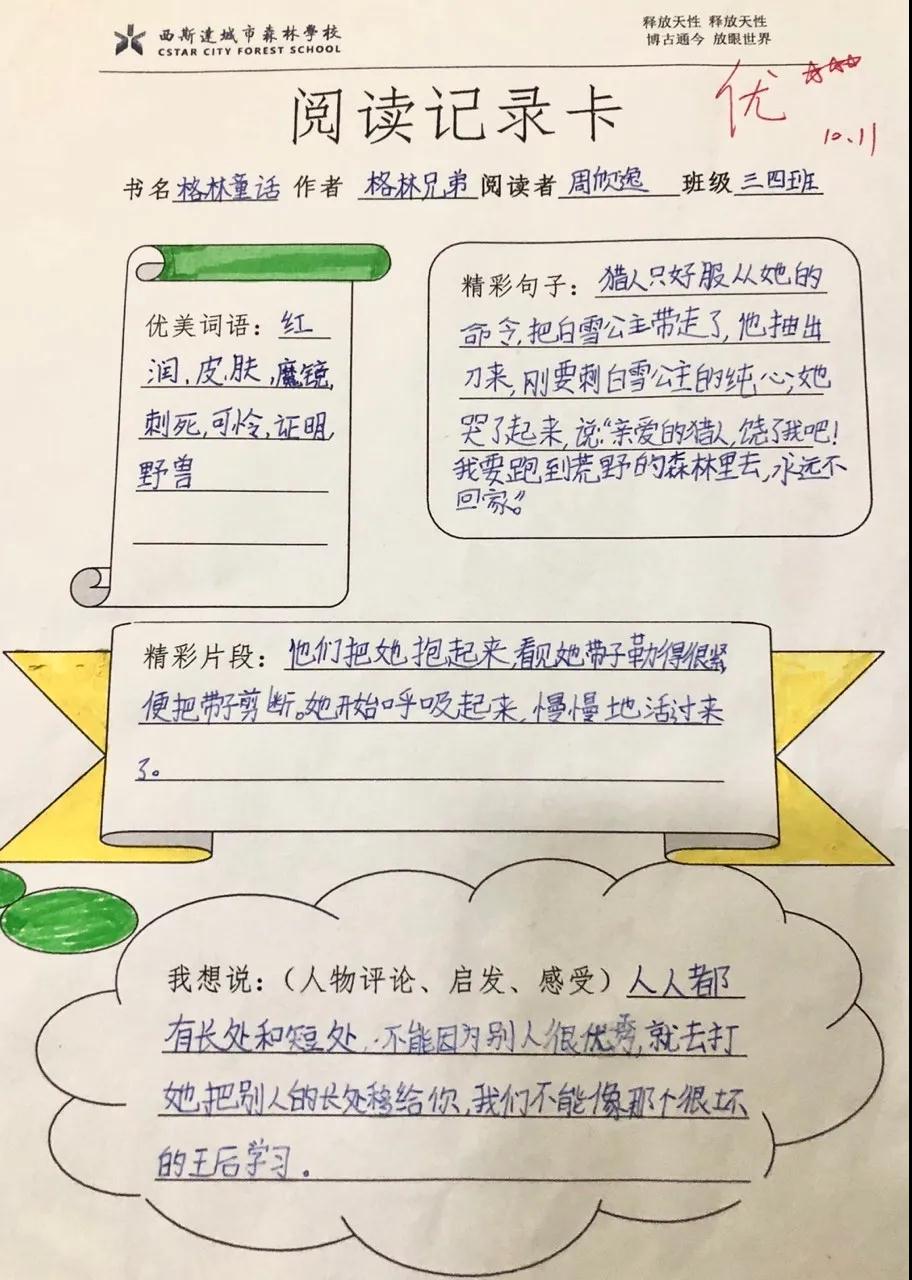 西斯达城市森林学校
CSTAR CITY FOREST SCHOOL
释放天性 释放天性
博古通今 放眼世界
优
10.11
阅读记录卡
书名 格林童话 作者 格林兄弟 阅读者 周欣逸 班级 三四班
优美词语：红
润，皮肤，魔镜，
刺死，可怜，证明，
野兽
精彩句子：猎人只好服从她的
命令，把白雪公主带走了，他抽出
刀来，刚要刺白雪公主的纯心，她
哭了起来，说：“亲爱的猎人，饶了我吧！
我要跑到荒野的森林里去，永远不
回家。”
精彩片段：他们把她抱起来，看见她带子勒得很紧
便把带子剪断。她开始呼吸起来，慢慢地活过来
了。
我想说：（人物评论、启发、感受）人人都
有长处和短处，不能因为别人很优秀，就去打
她把别人的长处移给你，我们不能像那个很坏
的王后学习．